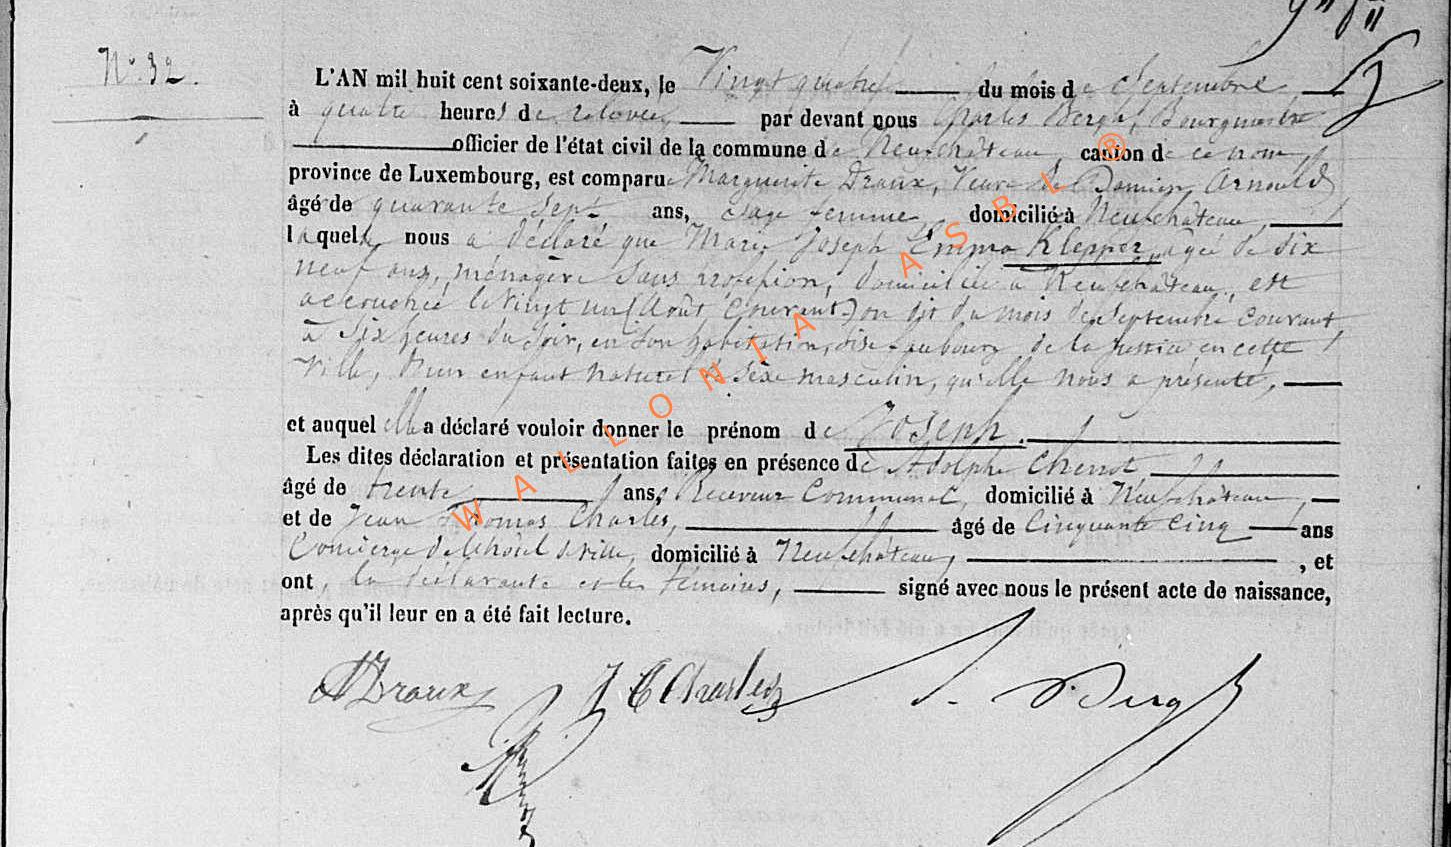 N° 32.
L'AN mil huit cent soixante-deux, le Vingt quatre du mois de Septembre
à quatre heures de relevée, par devant nous Charles Bergh, Bourgmestre
officier de l'état civil de la commune de Neufchâteau, canton de ce nom,
province de Luxembourg, est comparue Marguerite Draux, Veuve de Damien Arnould
âgé de quarante sept ans, sage femme, domicilié à Neufchâteau,
laquelle nous a déclaré que Marie Joseph Emma Klepper, agée de dix
neuf ans, ménagère sans profession, domiciliée à Neufchâteau, est
accouchée le vingt un (Août courant) on dit du mois de Septembre courant
à six heures du soir, en son habitation, sise faubourg de la justice en cette
Ville, D'un enfant naturel d sexe masculin, qu'elle nous a présenté,
et auquel elle a déclaré vouloir donner le prénom de Joseph.
Les dites déclaration et présentation faites en présence de Adolphe
âgé de trente ans, Receveur Communal, domicilié à Neufchâteau,
et de Jean Thomas Charles, âgé de Cinquante cinq ans
Concierge de l'hôtel de ville, domicilié à Neufchâteau, , et
ont, la déclarante et les témoins, signé avec nous le présent acte de naissance,
après qu'il leur en a été fait lecture.
MDraux J T Charles Bergh
WALLONIA ASBL ®